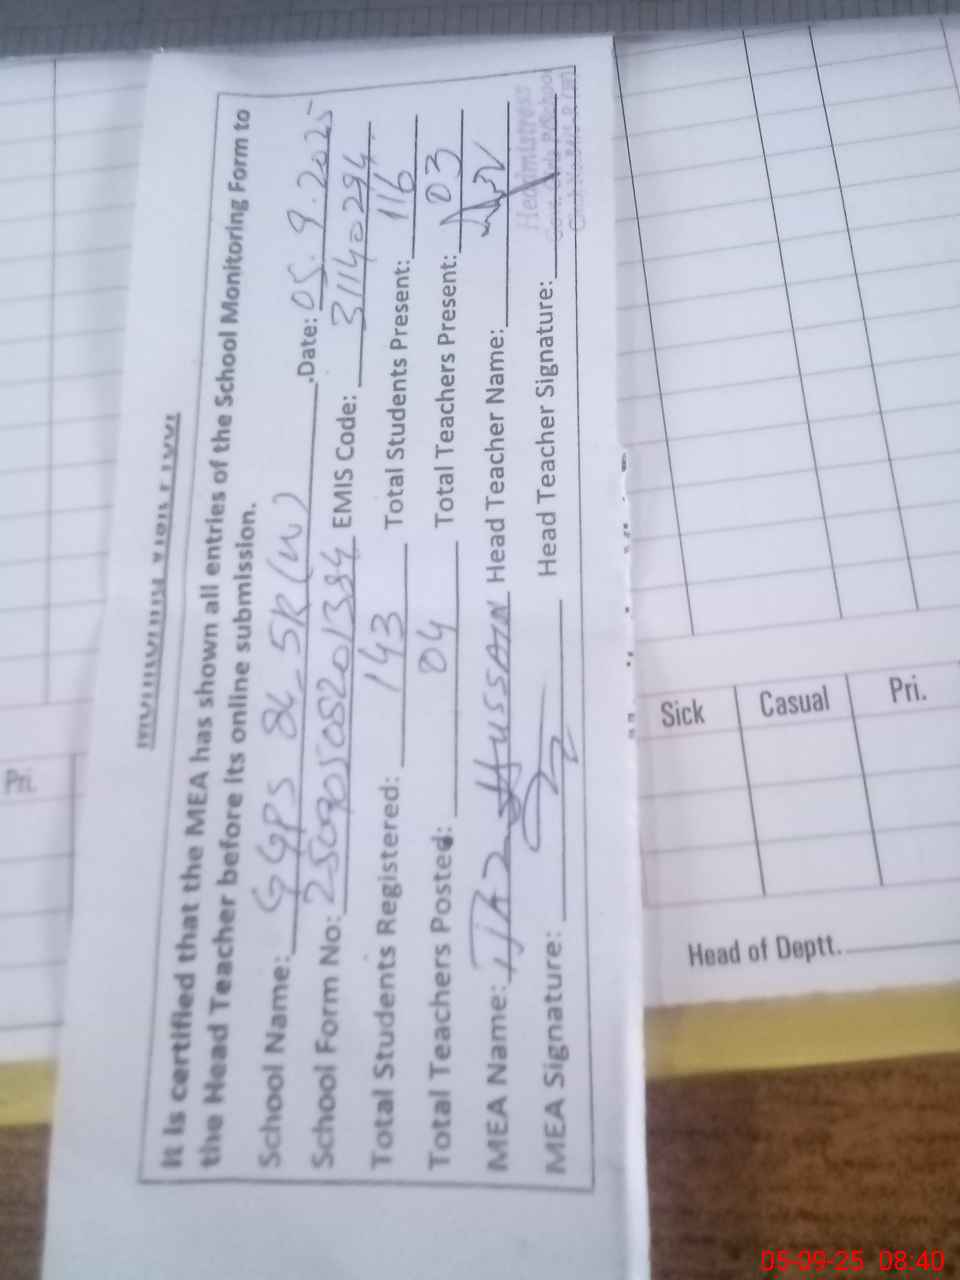 It is certified that the MEA has shown all entries of the School Monitoring Form to
the Head Teacher before its online submission.
School Name: GGPS 84_5R(W) .Date: 05.9.2025
School Form No: EMIS Code: 31140294
Total Students Registered: 143 Total Students Present: 116
Total Teachers Posted: 04 Total Teachers Present: 03
MEA Name: IJAZ HUSSAIN Head Teacher Name:
MEA Signature: Head Teacher Signature:
Headmistress
Pri.
Sick Casual Pri.
Head of Deptt.
05-09-25 08:40